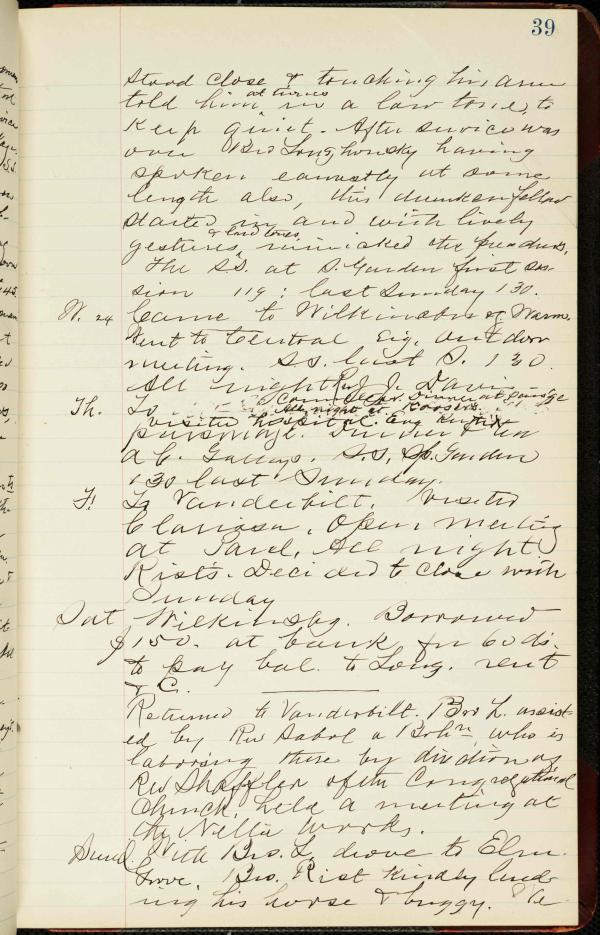 39
stood close & touching his arm
at times
told him in a low tone, to
keep quiet. After service was
over Bro Long, housky having
spoken earnestly at some
length also, this drunken fellow
started in and with lively
& loud tones
gestures, mimicked the preachers.
The S.S. at S. Garden first ses-
sion 119; last Sunday 130.
W. 24 Came to Wilkinsbg. Warm.
Went to Central Eve. outdoor
meeting. S.S. last S. 130
All night Rev J. Davis
Th. To Dinner at parsonage
All night at
visited hospital. Eve
parsonage. Dinner & tea
at C. S.S. Sp. Garden
130 last Sunday.
F. To Vanderbilt. Visited
Clarissa. Open meeting
at Pard. All night
Rist's. Decided to close with
Sunday
Sat Wilkinsbg. Borrowed
$150. at bank for 60 ds.
to pay bal. to Long. rent
& C.
Returned to Vanderbilt. Bro L. assist-
ed by Rev a Bohn who is
laboring there by direction of
Rev Shaffler of the Congregational
Church, held a meeting at
the Nellie works.
Sund. With Bro. L. drove to Elm
Grove, Bro. Rist kindly lend-
ing his horse & buggy. We